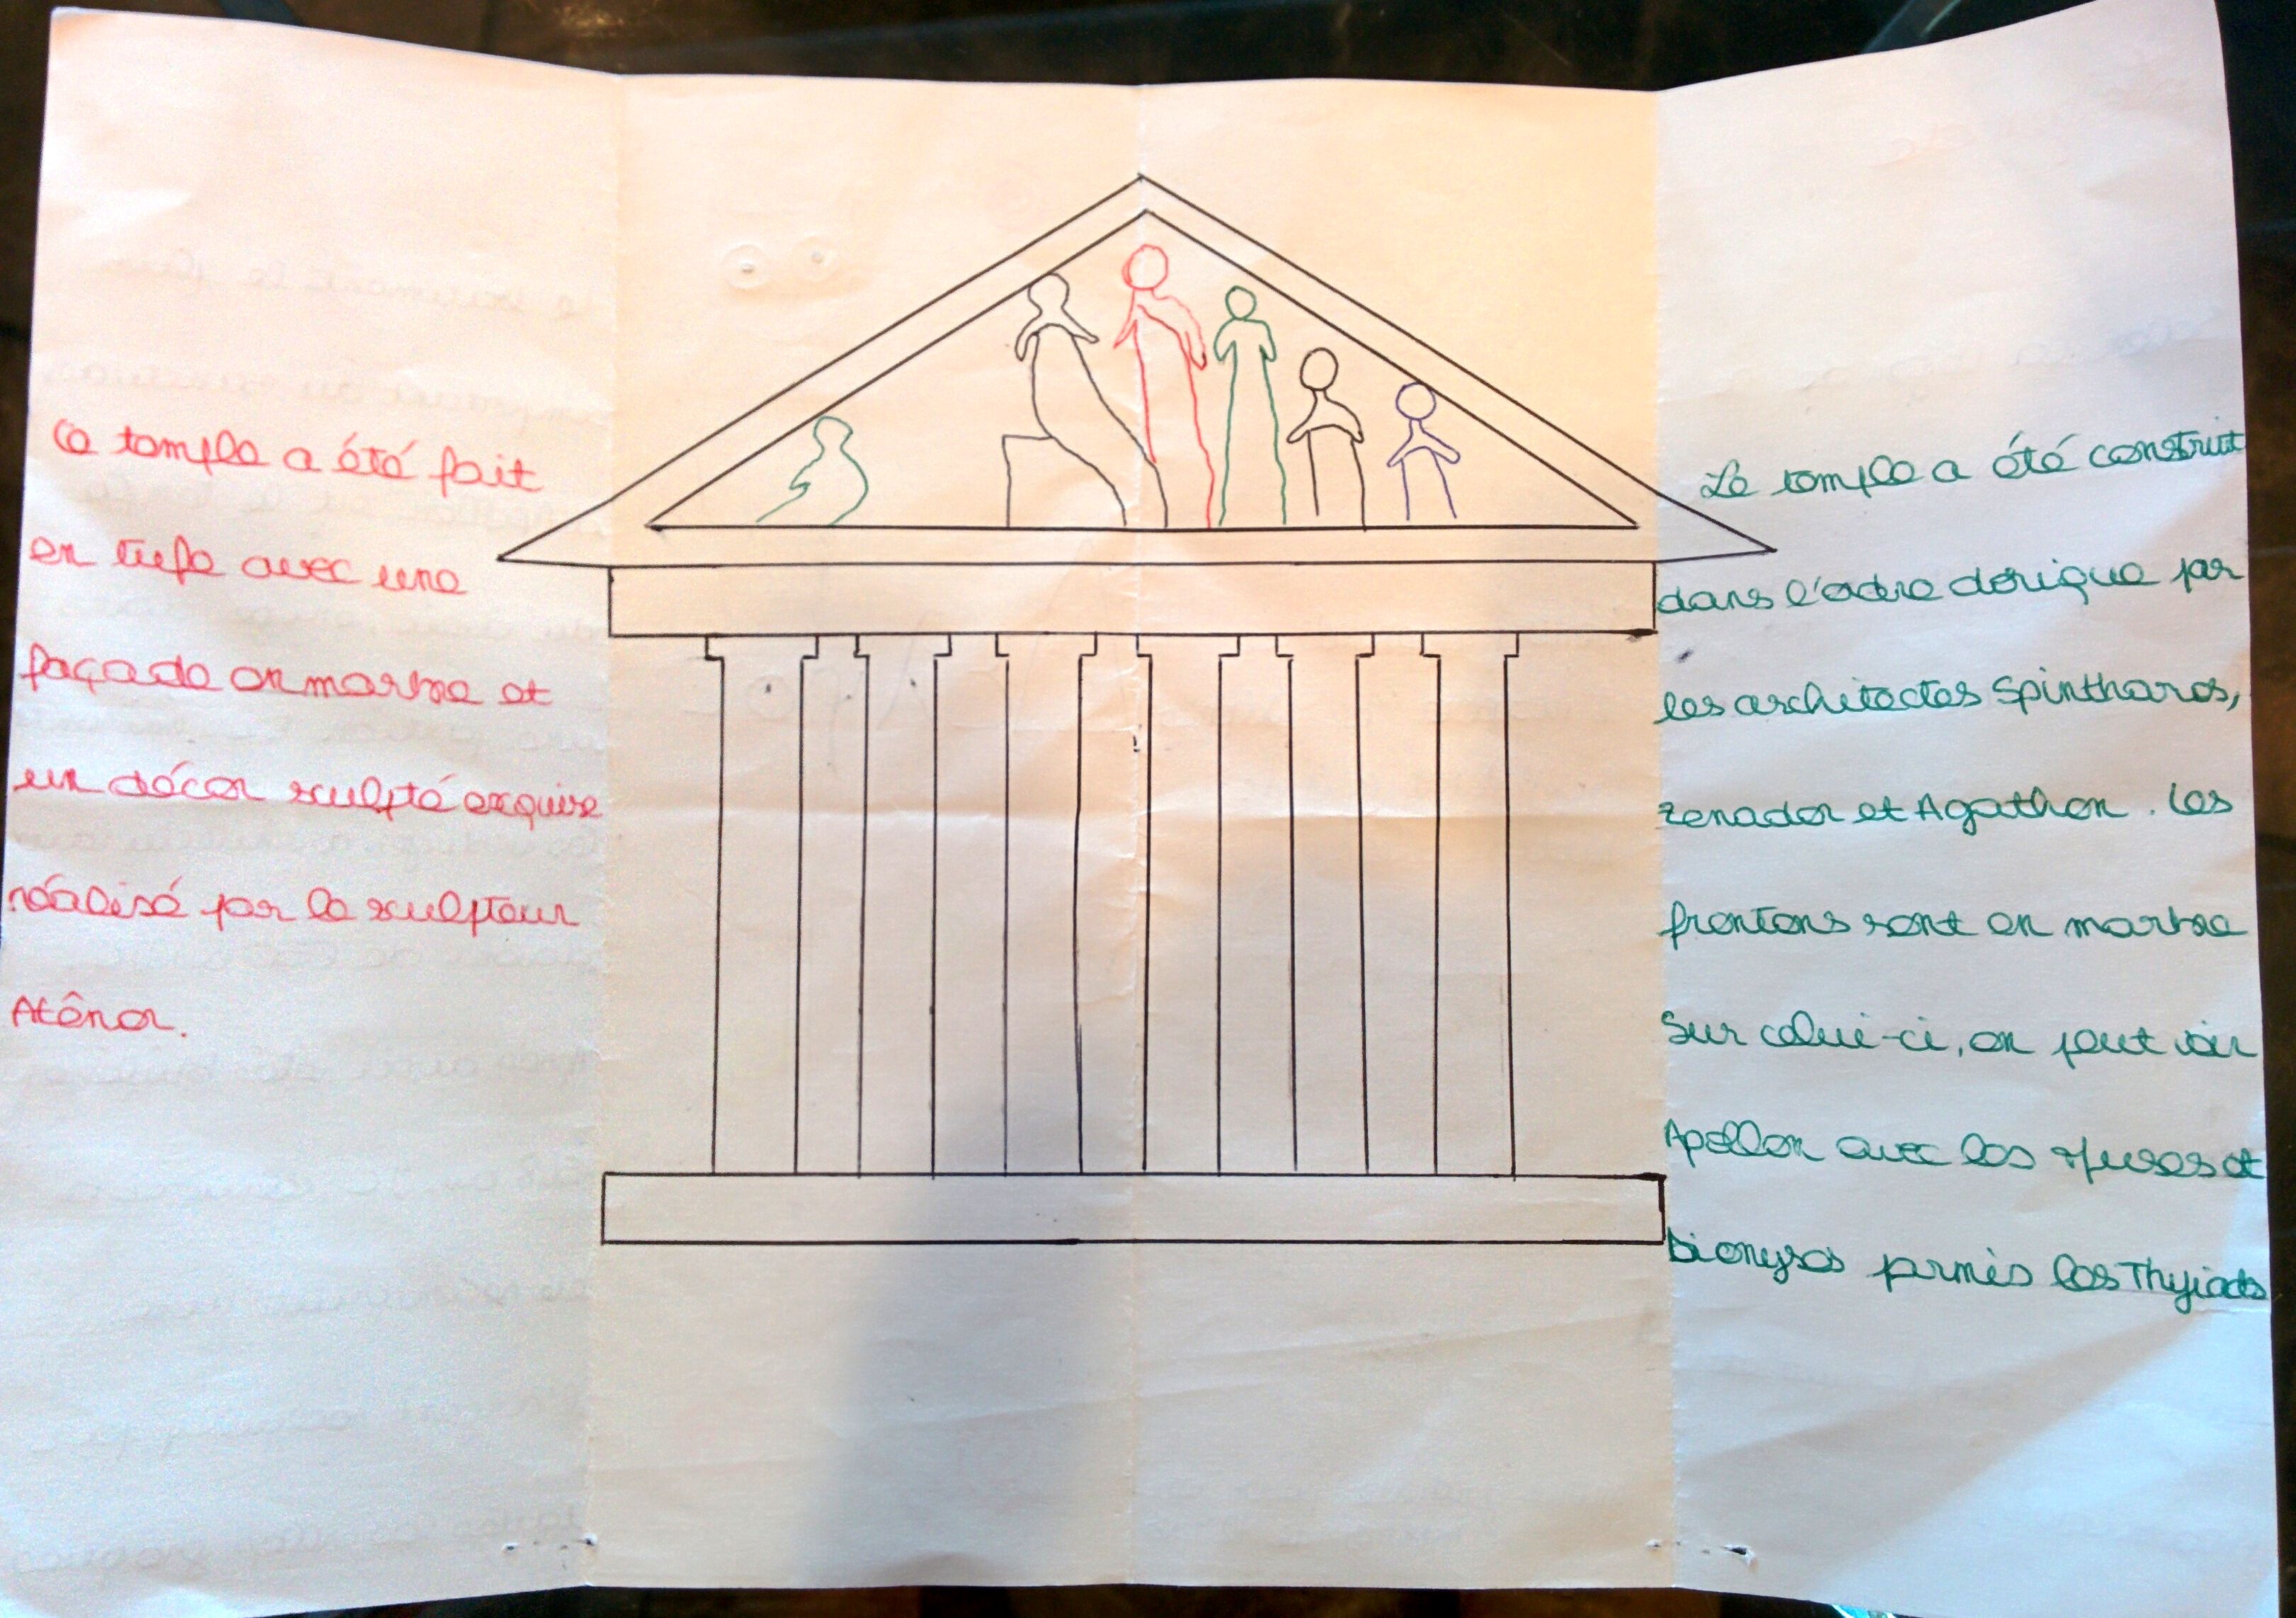 Ce temple a été fait
en tufe avec une
façade en marbre et
un décor sculpté exquise
réalisé par le sculpteur
Aténor.
Le temple a été construit
dans l'odre dorique par
les architectes Spintharos,
zenador et Agathon. Les
frontons sont en marbre
Sur celui-ci, on peut voir
Apollon avec les Muses et
Dionysos parmis les Thyiads